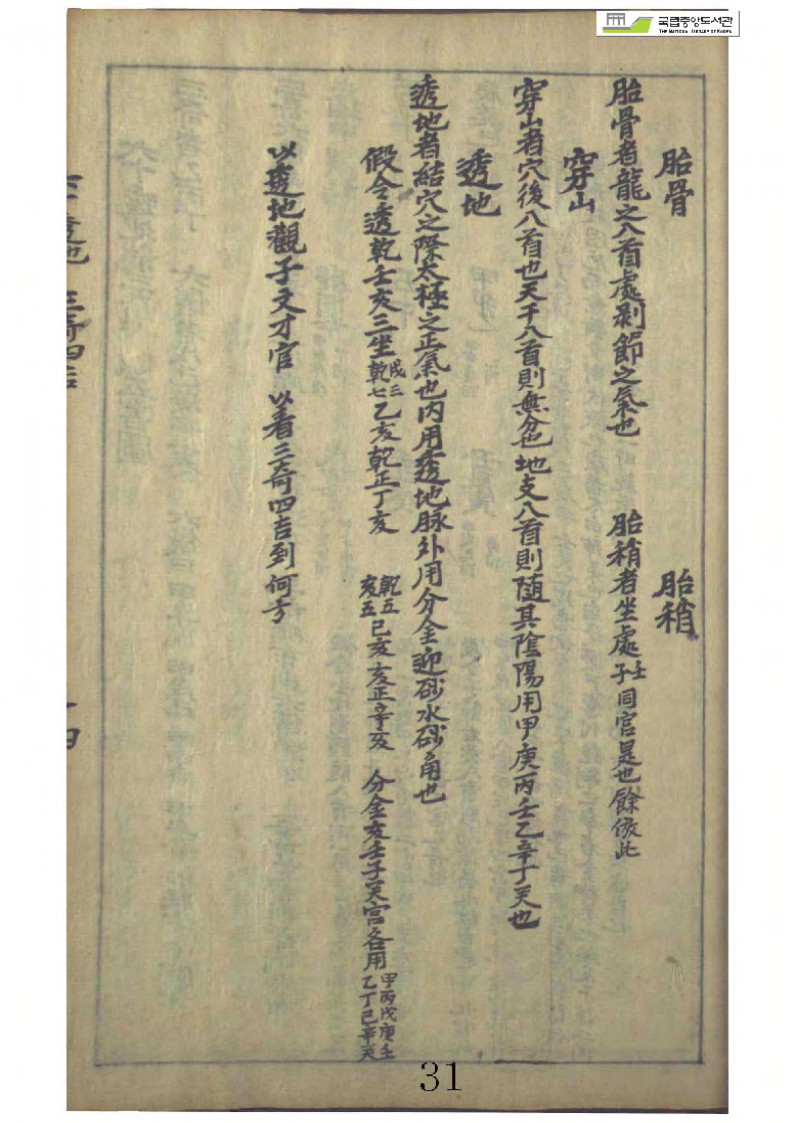 국립중앙도서관
THE NATIONAL LIBRARY OF KOREA
胎骨 胎稍
胎骨者龍之入首處剝節之氣也 胎稍者坐處壬子同宮是也餘倣此
穿山
穿山者穴後入首也天干入首則無分也地支入首則隨其陰陽用甲庚丙壬乙辛丁癸也
透地
透地者結穴之際太極之正氣也內用透地脉外用分金迎砂水砂角也
假令透乾壬亥三坐戌三乾七乙亥乾正丁亥 乾五亥五己亥亥正辛亥 分金亥壬子癸宮各用甲丙戊庚壬乙丁己辛癸
以透地觀子文才官 以看三奇四吉到何方
31